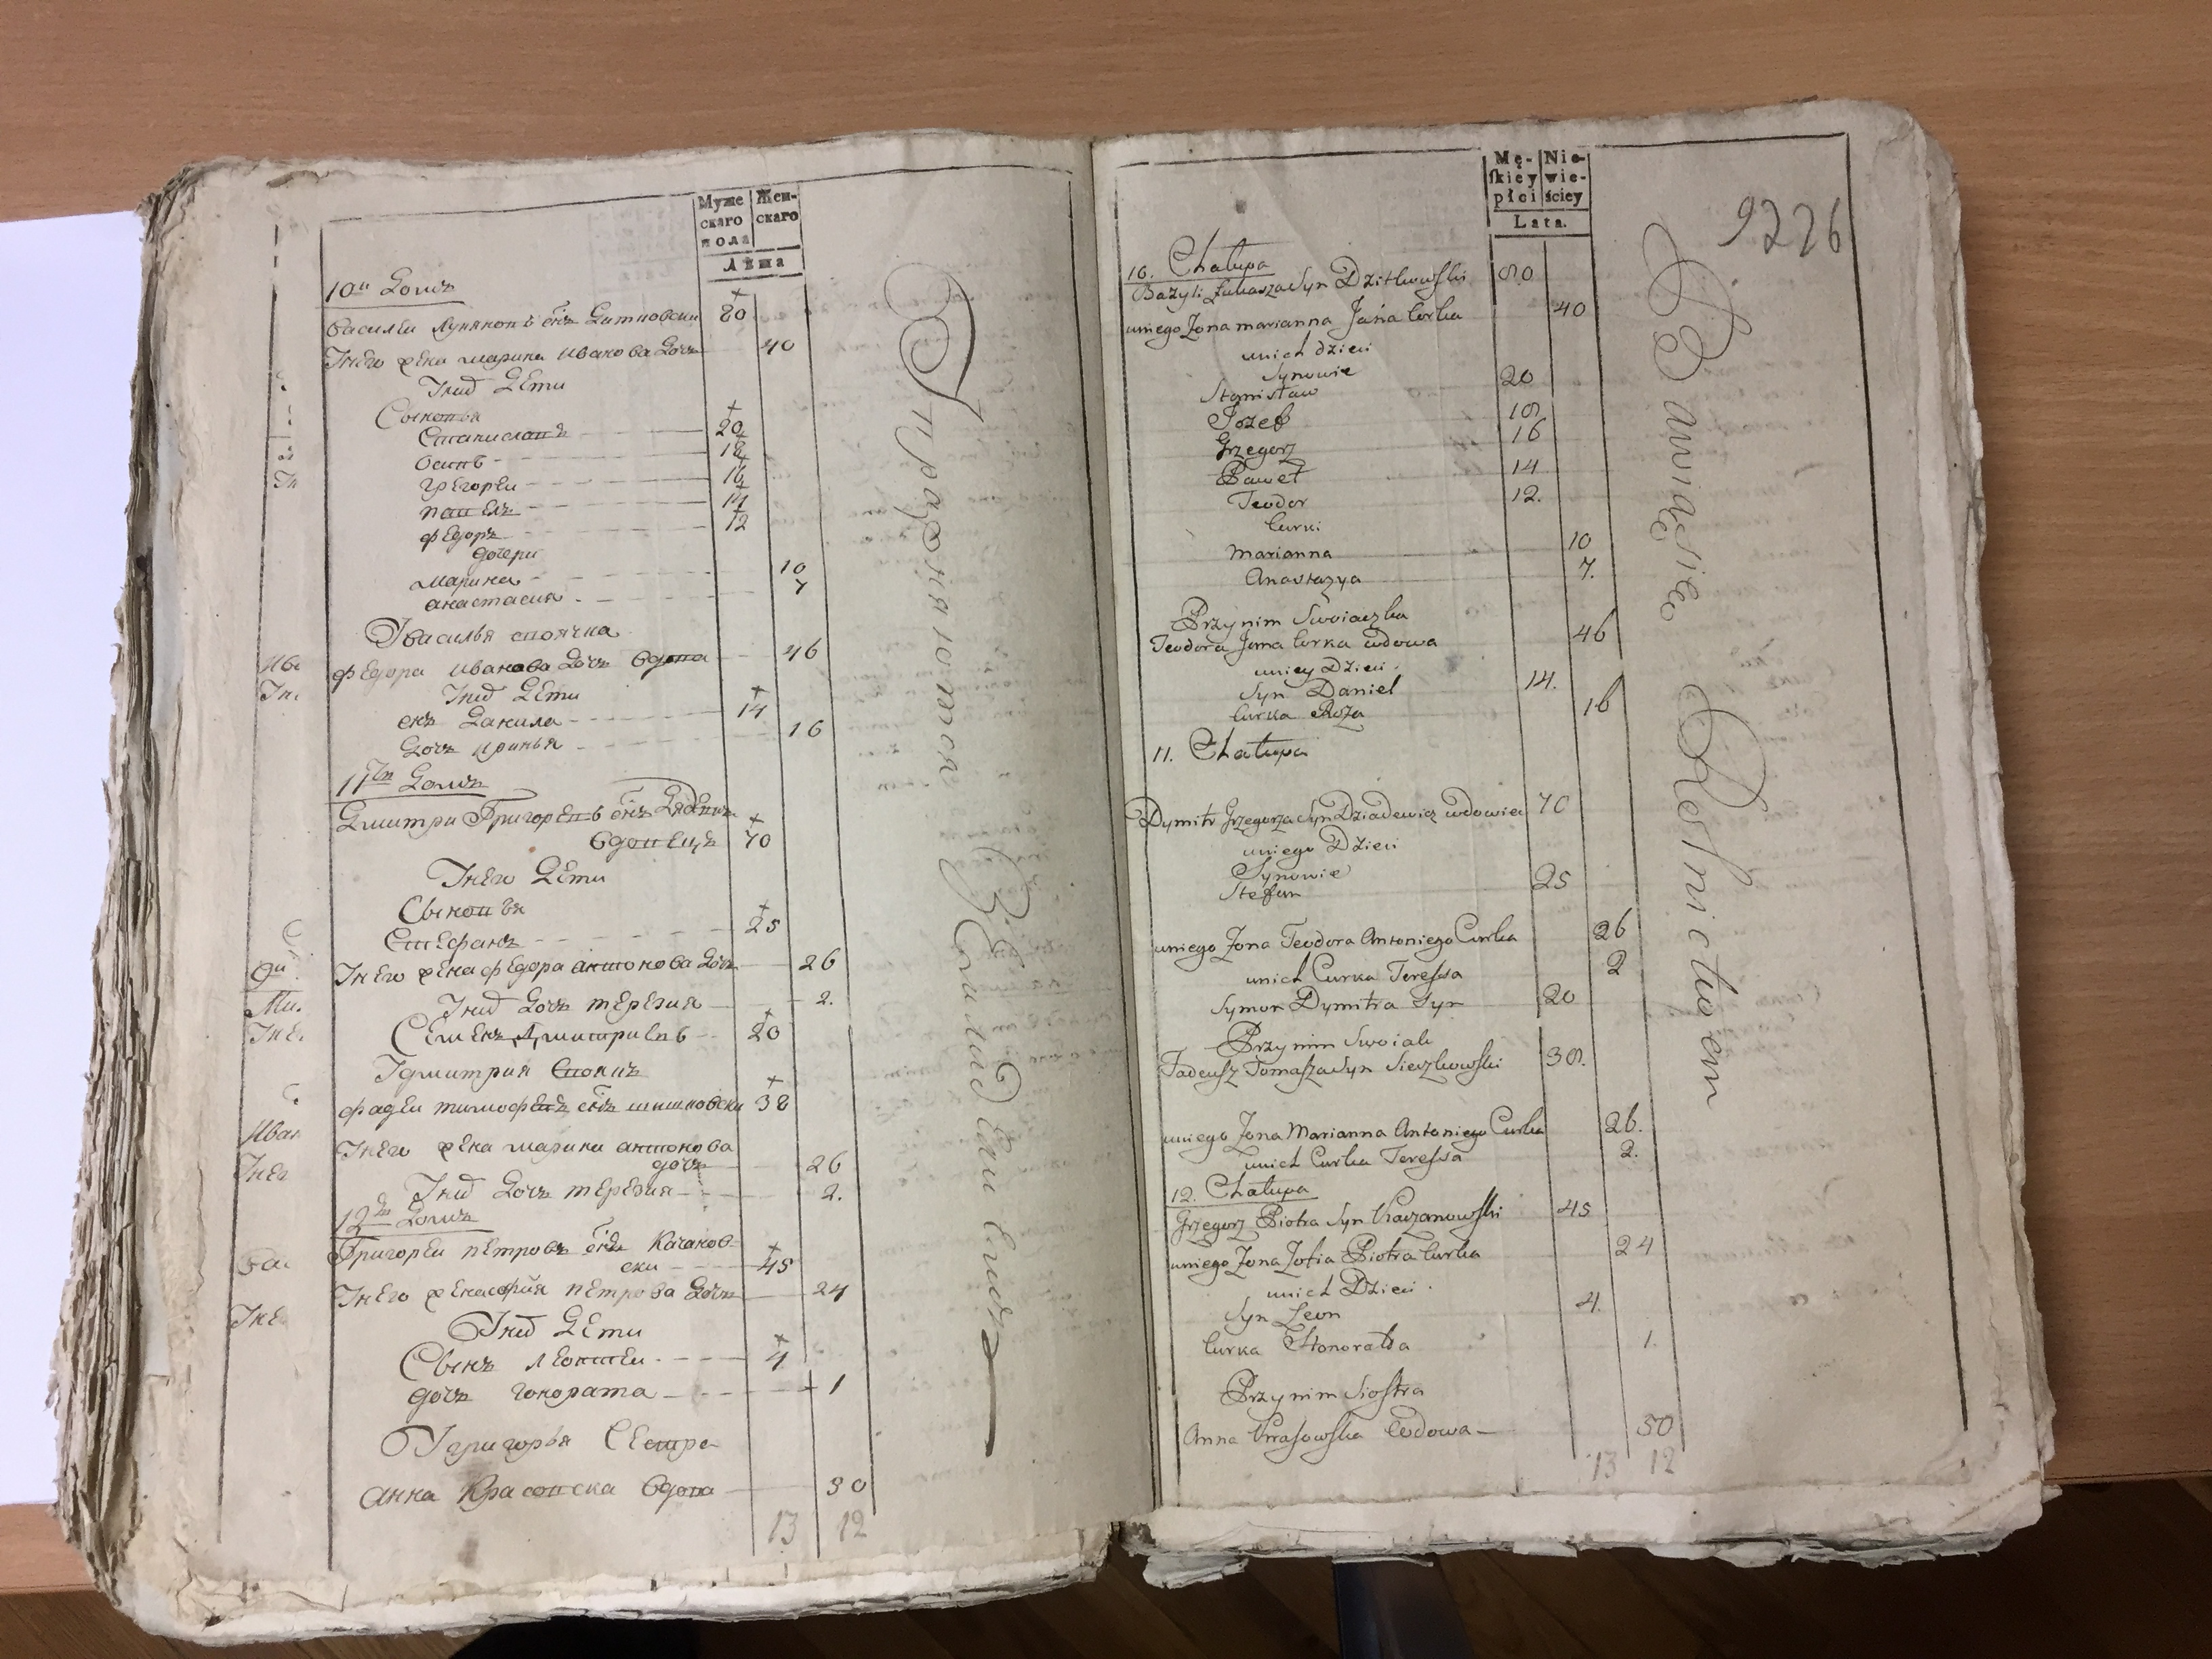 Муже
скаго
пола
Жен-
скаго
Лѣта
10й Домъ
40
Унего жена марина иванова дочь
Унихъ дѣти
Сыновья
Станиславъ 20
осипъ 18
григореи 16
павелъ 14
федоръ 12
дочери
марина 10
анастасия 7
Увасилья своячка
федора иванова дочь вдова 46
Унихъ дѣти
снъ данила 14
дочь 16
11й Домъ
Дмитри Григорьевъ снъ
вдовецъ 70
Унего дѣти
Сыновья
Стефанъ 25
Унего жена федора антонова дочь 26
Унихъ дочь терезия 2.
Семенъ Дмитриевъ 20
Удмитрия своякъ
фадеи тимофеевъ снъ 38
Унего жена марина антонова
дочь 26
Унихъ дочь терезия 2.
12й Домъ
Григореи петровъ снъ Качанов-
ски 45
Унего жена софия петрова дочь 24
Унихъ дѣти
Сынъ леонтеи 4
дочь гонората 1
Угригорья Сестра
анна Красовска вдова 30
13 12
Упражняются В Земледелии
Mę-
skiey
płci
Nie-
wie-
ściey
Lata.
9226
10. Chałupa
Bazyli Łukasza Syn Dzitkowski 80
uniego Żona marianna Jana Corka 40
unich dzieci
Synowie
Stanisław 20
Jozef 18
Grzegorz 16
Paweł 14
Teodor 12.
Curki
Marianna 10
Anastazya 7.
Przynim Swoiaczka
Teodora Jana Curka wdowa 46
uniey Dzieci.
Syn Daniel 14.
Curka Roza 16
11. Chałupa
Dymitr Grzegorza Syn Dziadewicz wdowiec 70
uniego Dzieci
Synowie
Stefan 25
uniego Żona Teodora Antoniego Curka 26
unich Curka Teressa 2
Symon Dymitra Syn 20
Przynim Swoiak
Tadeusz Tomasza Syn Sieszkowski 38.
uniego Żona Marianna Antoniego Curka 26.
unich Curka Teressa 2.
12. Chałupa
Grzegorz Piotra Syn Kaczanowski 45
uniego Żona Zofia Piotra Curka 24
unich Dzieci.
Syn Leon 4.
Curka Honorata 1.
Przynim Siostra
Anna Krasowska Wdowa 30
13 12
Bawią się Rolnictwem